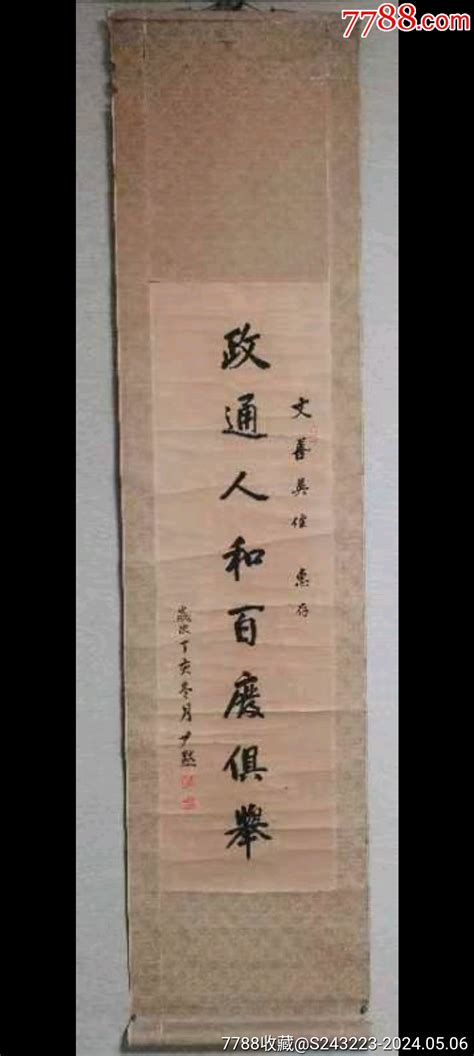 7788.com
文善英俊 惠存
政通人和百廢俱舉
歲次丁亥冬月 尹默
7788收藏@S243223-2024.05.06